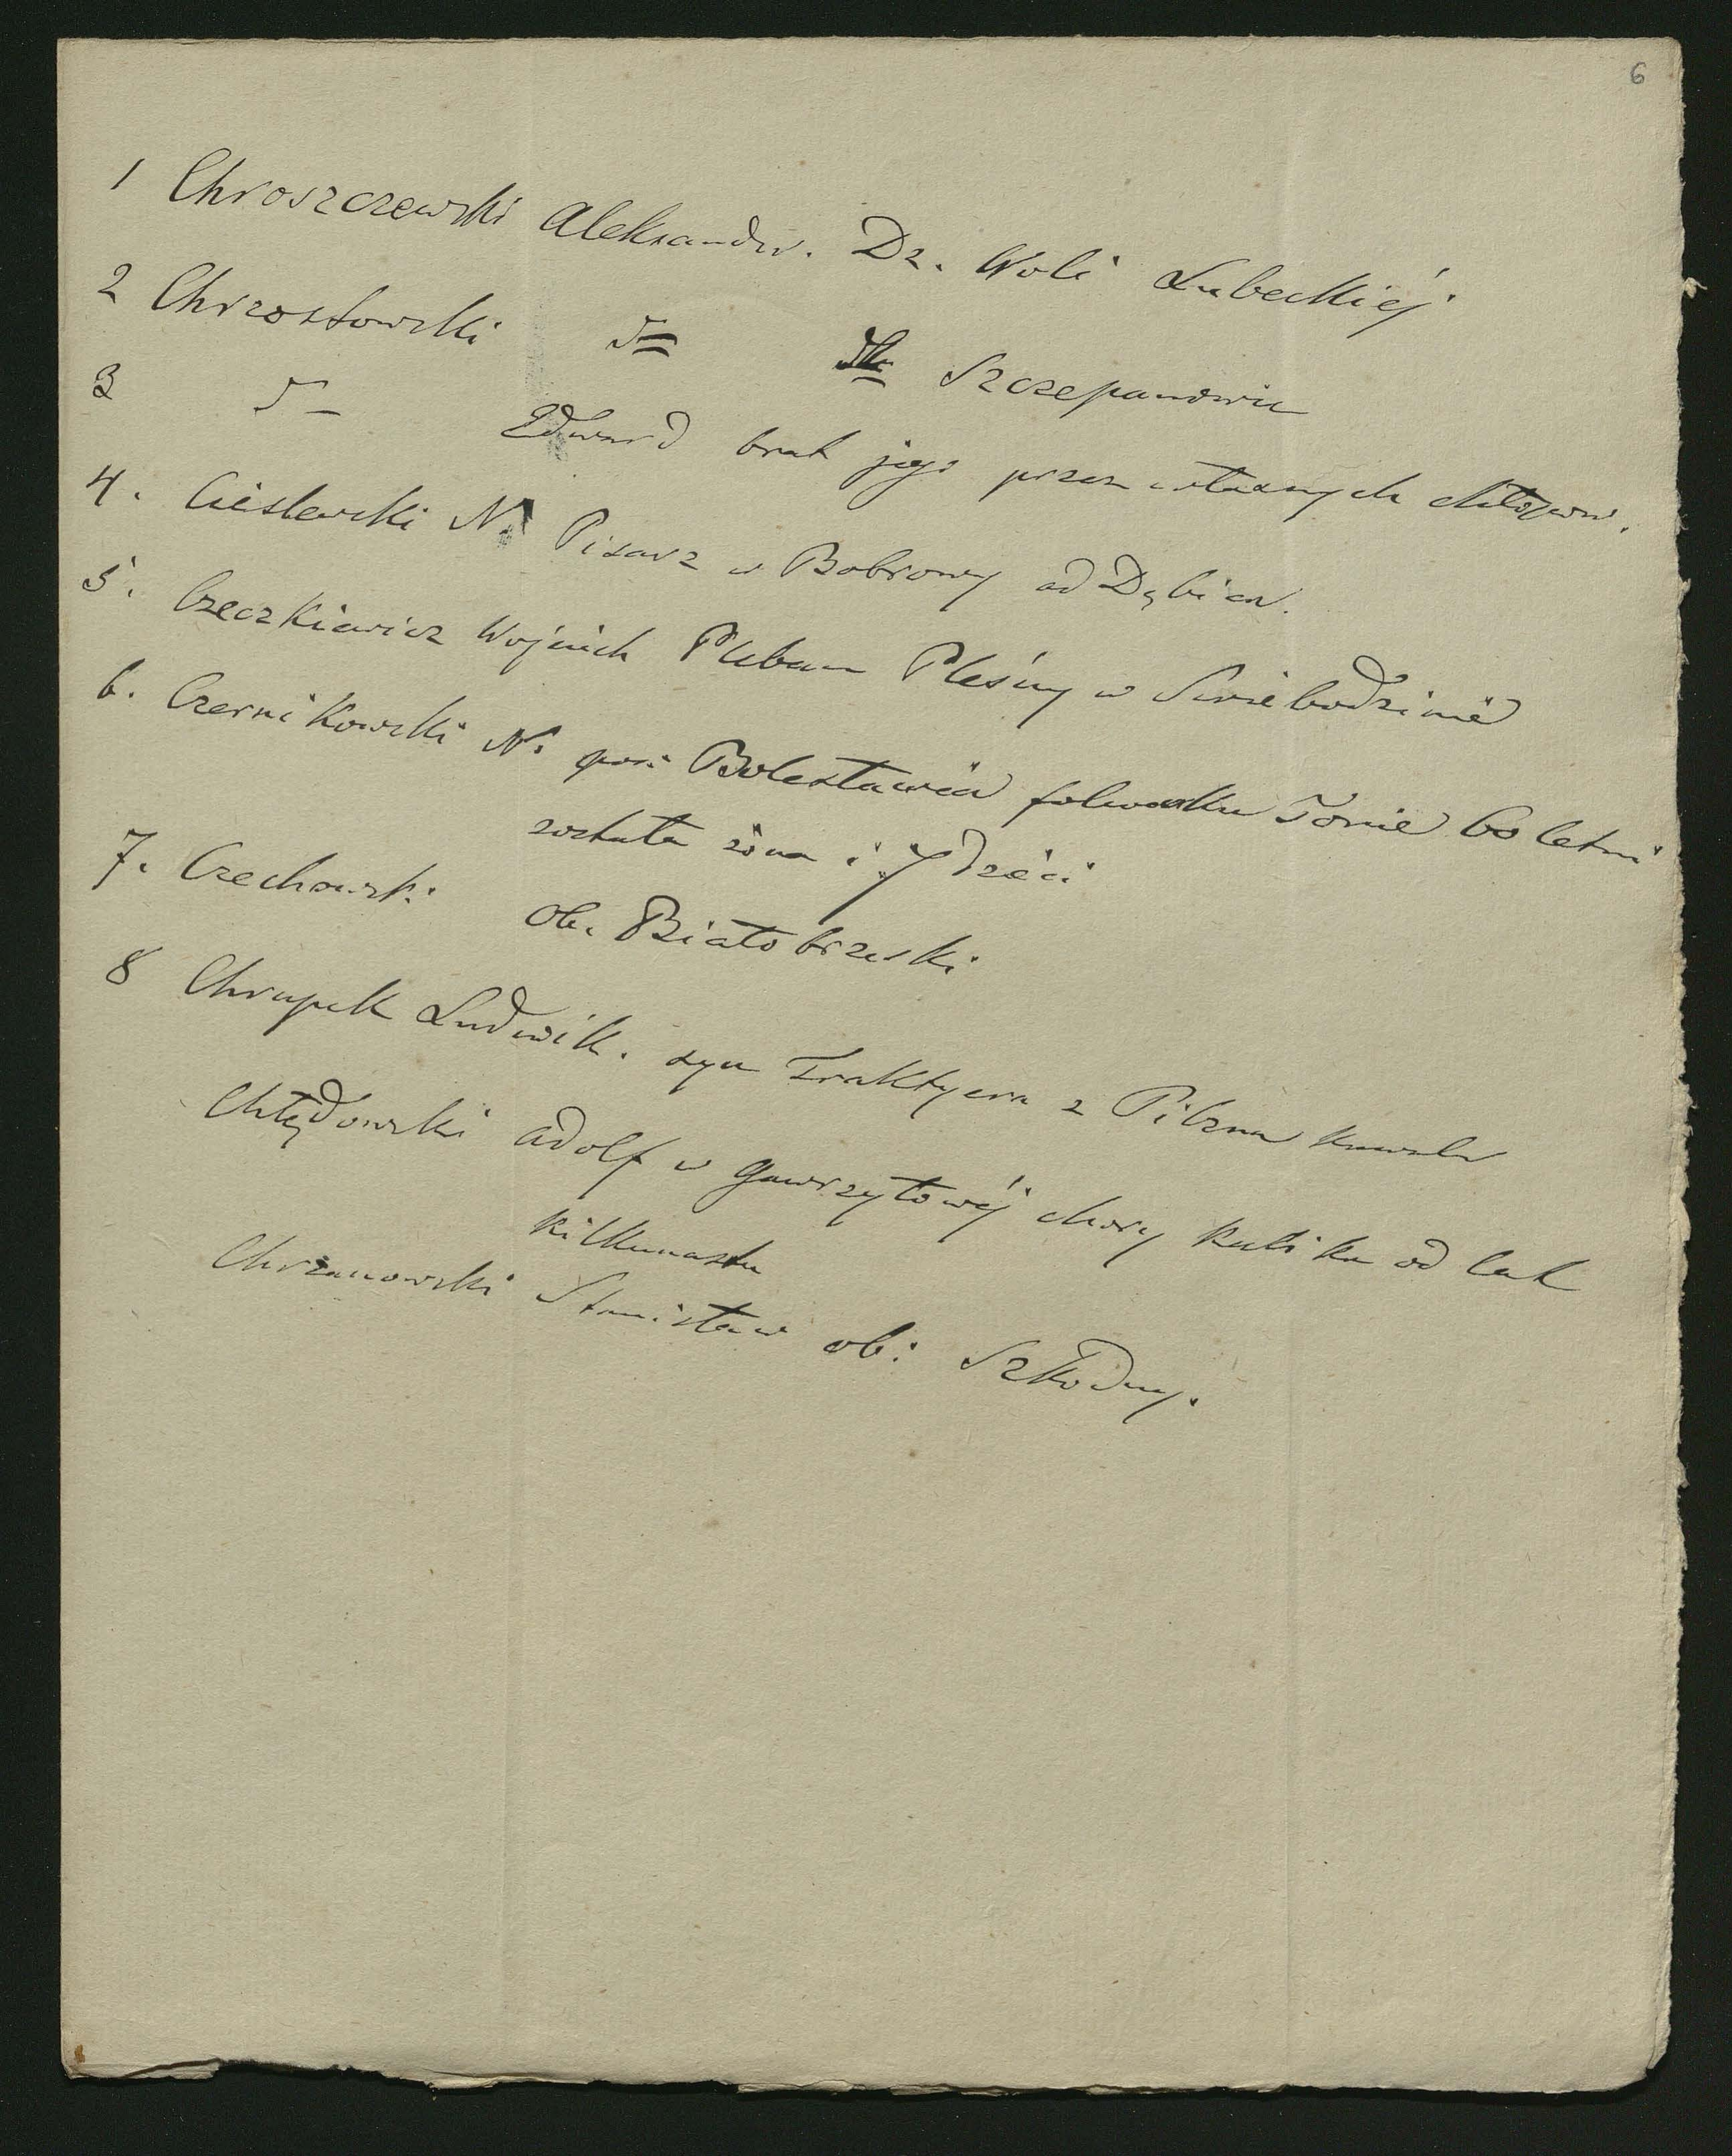 6
1 Chroszczewski Aleksander. Dz. Woli Lubeckiéj
2 Chrzostowski Szczepanowic
3 Edward brat jego przez własnych chłopów.
4. Cieslewski N. Pisarz w Bobrowy ad Dębica.
5. Czeczkiewicz Wojciech Pleban Pleśny w Swiebodzinie
6. Czernikowski N. pos: Bolesławia folwarku Tonie 60 letni
została żona i 7 dzeci
7. Czechowski ob. Białobrzeski
8 Chrupek Ludwik. syn Traktyera z Pilzna
Chłędowski Adolf w Gawrzyłowéj chory kalika od lat
kilkunastu
Chrzanowski Stanisław ob: Szkodny.